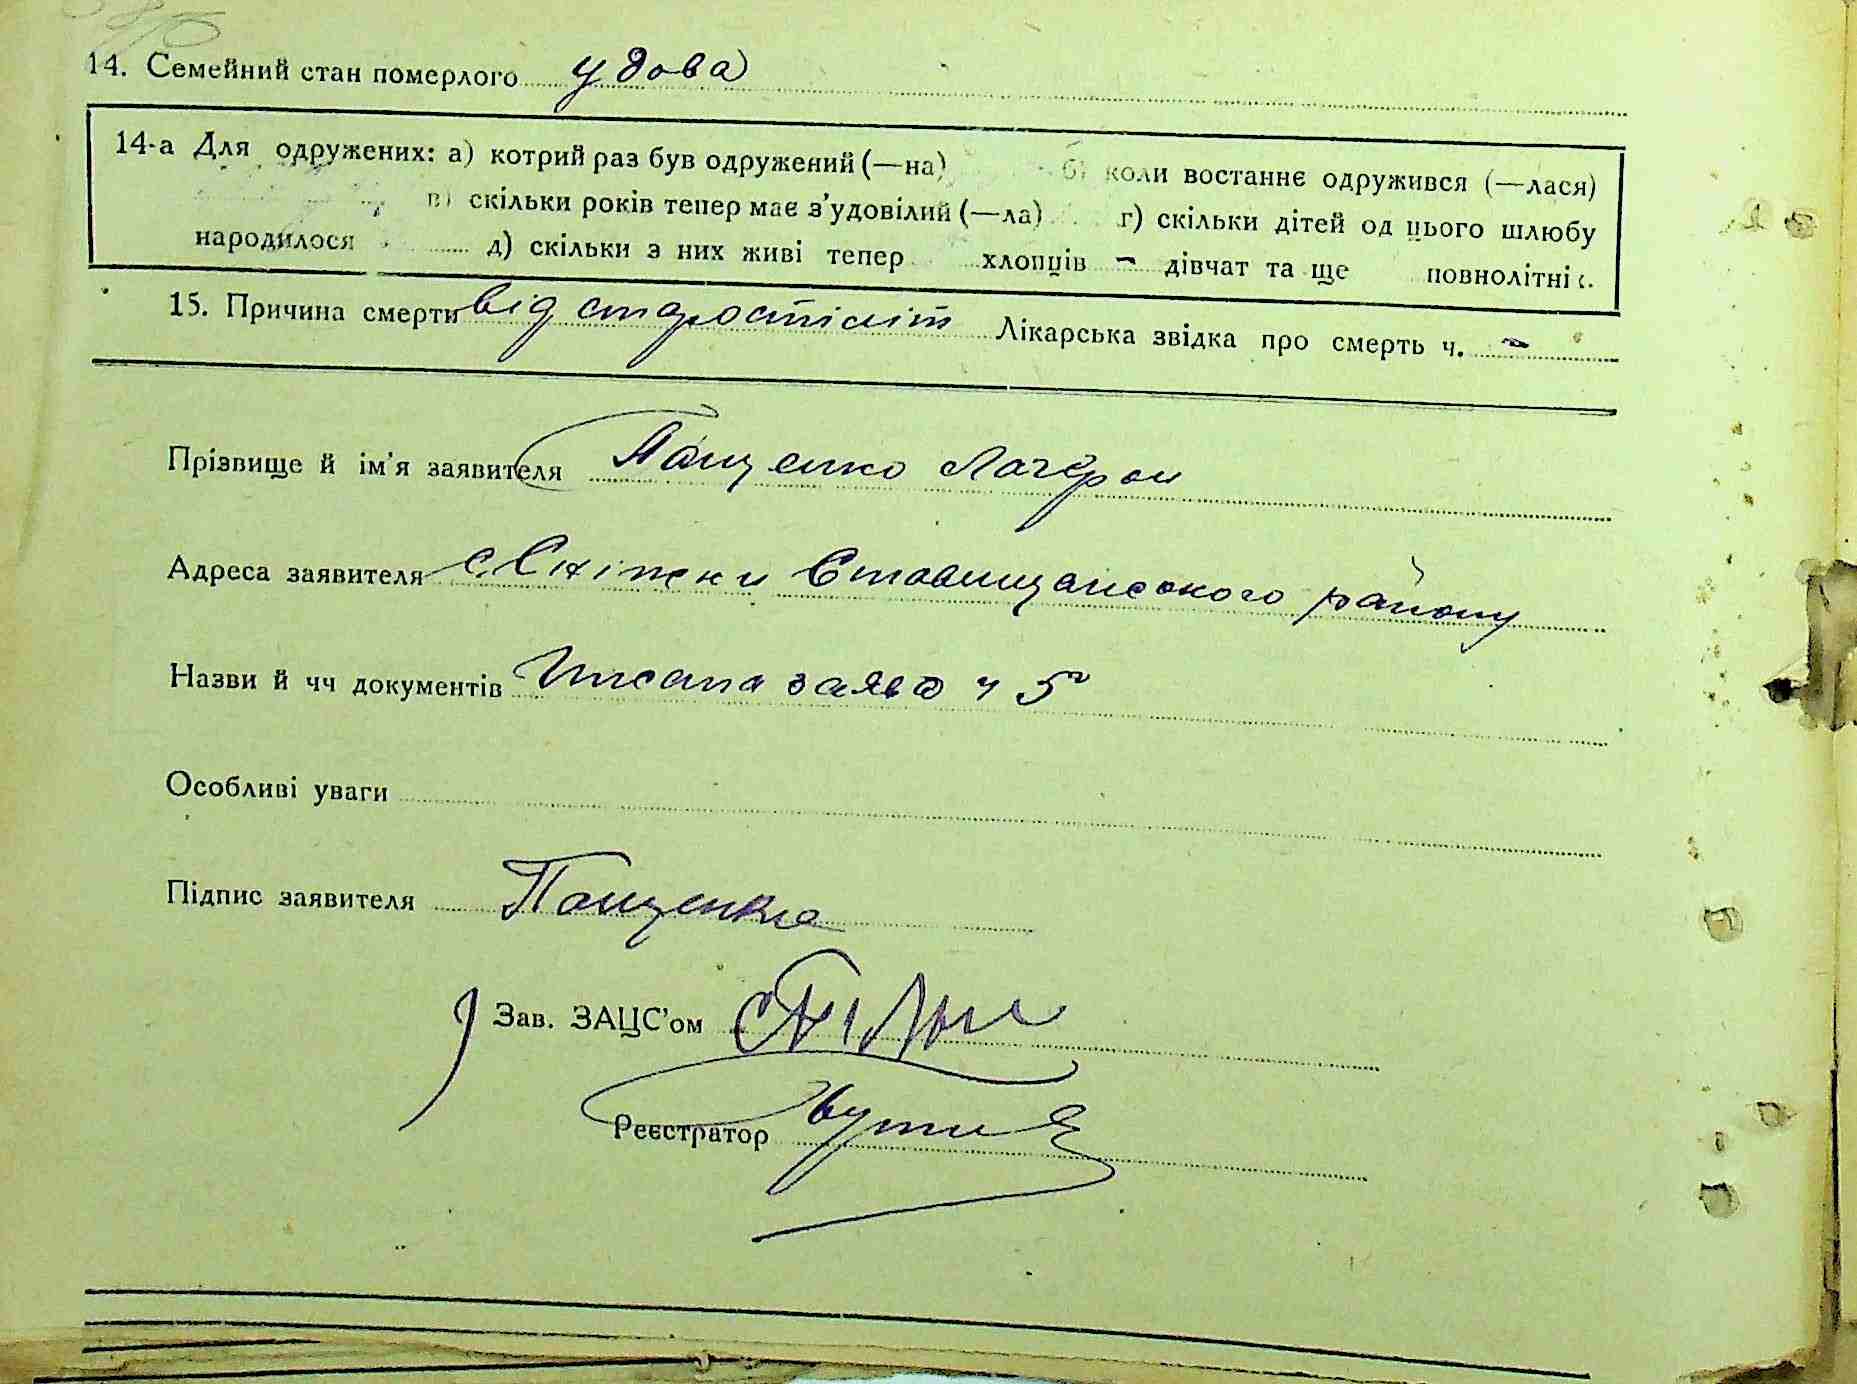 14. Семейний стан померлого удова
14-а Для одружених: а) котрий раз був одружений (—на) б) коли востаннє одружився (—лася)
в) скільки років тепер має з’удовілий (—ла) г) скільки дітей од цього шлюбу
народилося д) скільки з них живі тепер хлопців - дівчат та ще повнолітні
15. Причина смерти від старости літ Лікарська звідка про смерть ч. -
Прізвище й ім’я заявителя Пащенко
Адреса заявителя с. Сніжки Ставищанського району
Назви й чч документів заява ч 5
Особливі уваги
Підпис заявителя Пащенко
Зав. ЗАЦС’ом
Реєстратор